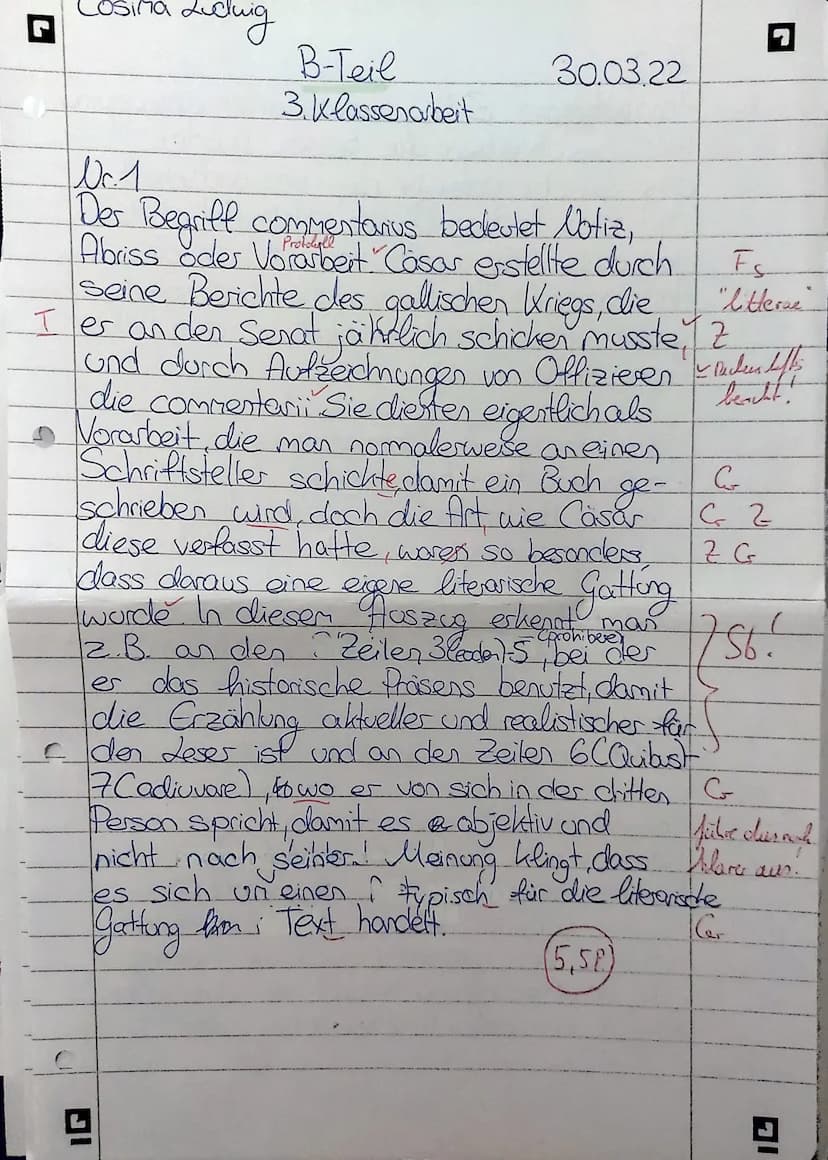 Cosima Ludwig
B-Teil 30.03.22
3. Klassenarbeit
Nr. 1
Der Begriff commentarius bedeutet Notiz,
Protokoll
Abriss oder Vorarbeit. Cäsar erstellte durch Fs
seine Berichte des gallischen Kriegs, die "litterae"
I er an den Senat jährlich schicken musste, Z
und durch Aufzeichnungen von Offizieren
die commentarii. Sie dienten eigentlich als bericht!
Vorarbeit, die man normalerweise an einen
Schriftsteller schickte, damit ein Buch ge- G
schrieben wird, doch die Art, wie Cäsar G Z
diese verfasst hatte, waren so besonders, Z G
dass daraus eine eigene literarische Gattung
wurde. In diesem Auszug erkennt man
z.B. an den Zeilen 3(eodem)-5 (prohibere), bei der Sb!
er das historische Präsens benutzt, damit
die Erzählung aktueller und realistischer für
den Leser ist und an den Zeilen 6(Quibus)-
7(adiuvare), wo er von sich in der dritten G
Person spricht, damit es objektiv und führe dies noch
nicht nach seiner Meinung klingt, dass klarer aus!
es sich um einen typisch für die literarische
Gattung Text handelt. Gr
5,5P.